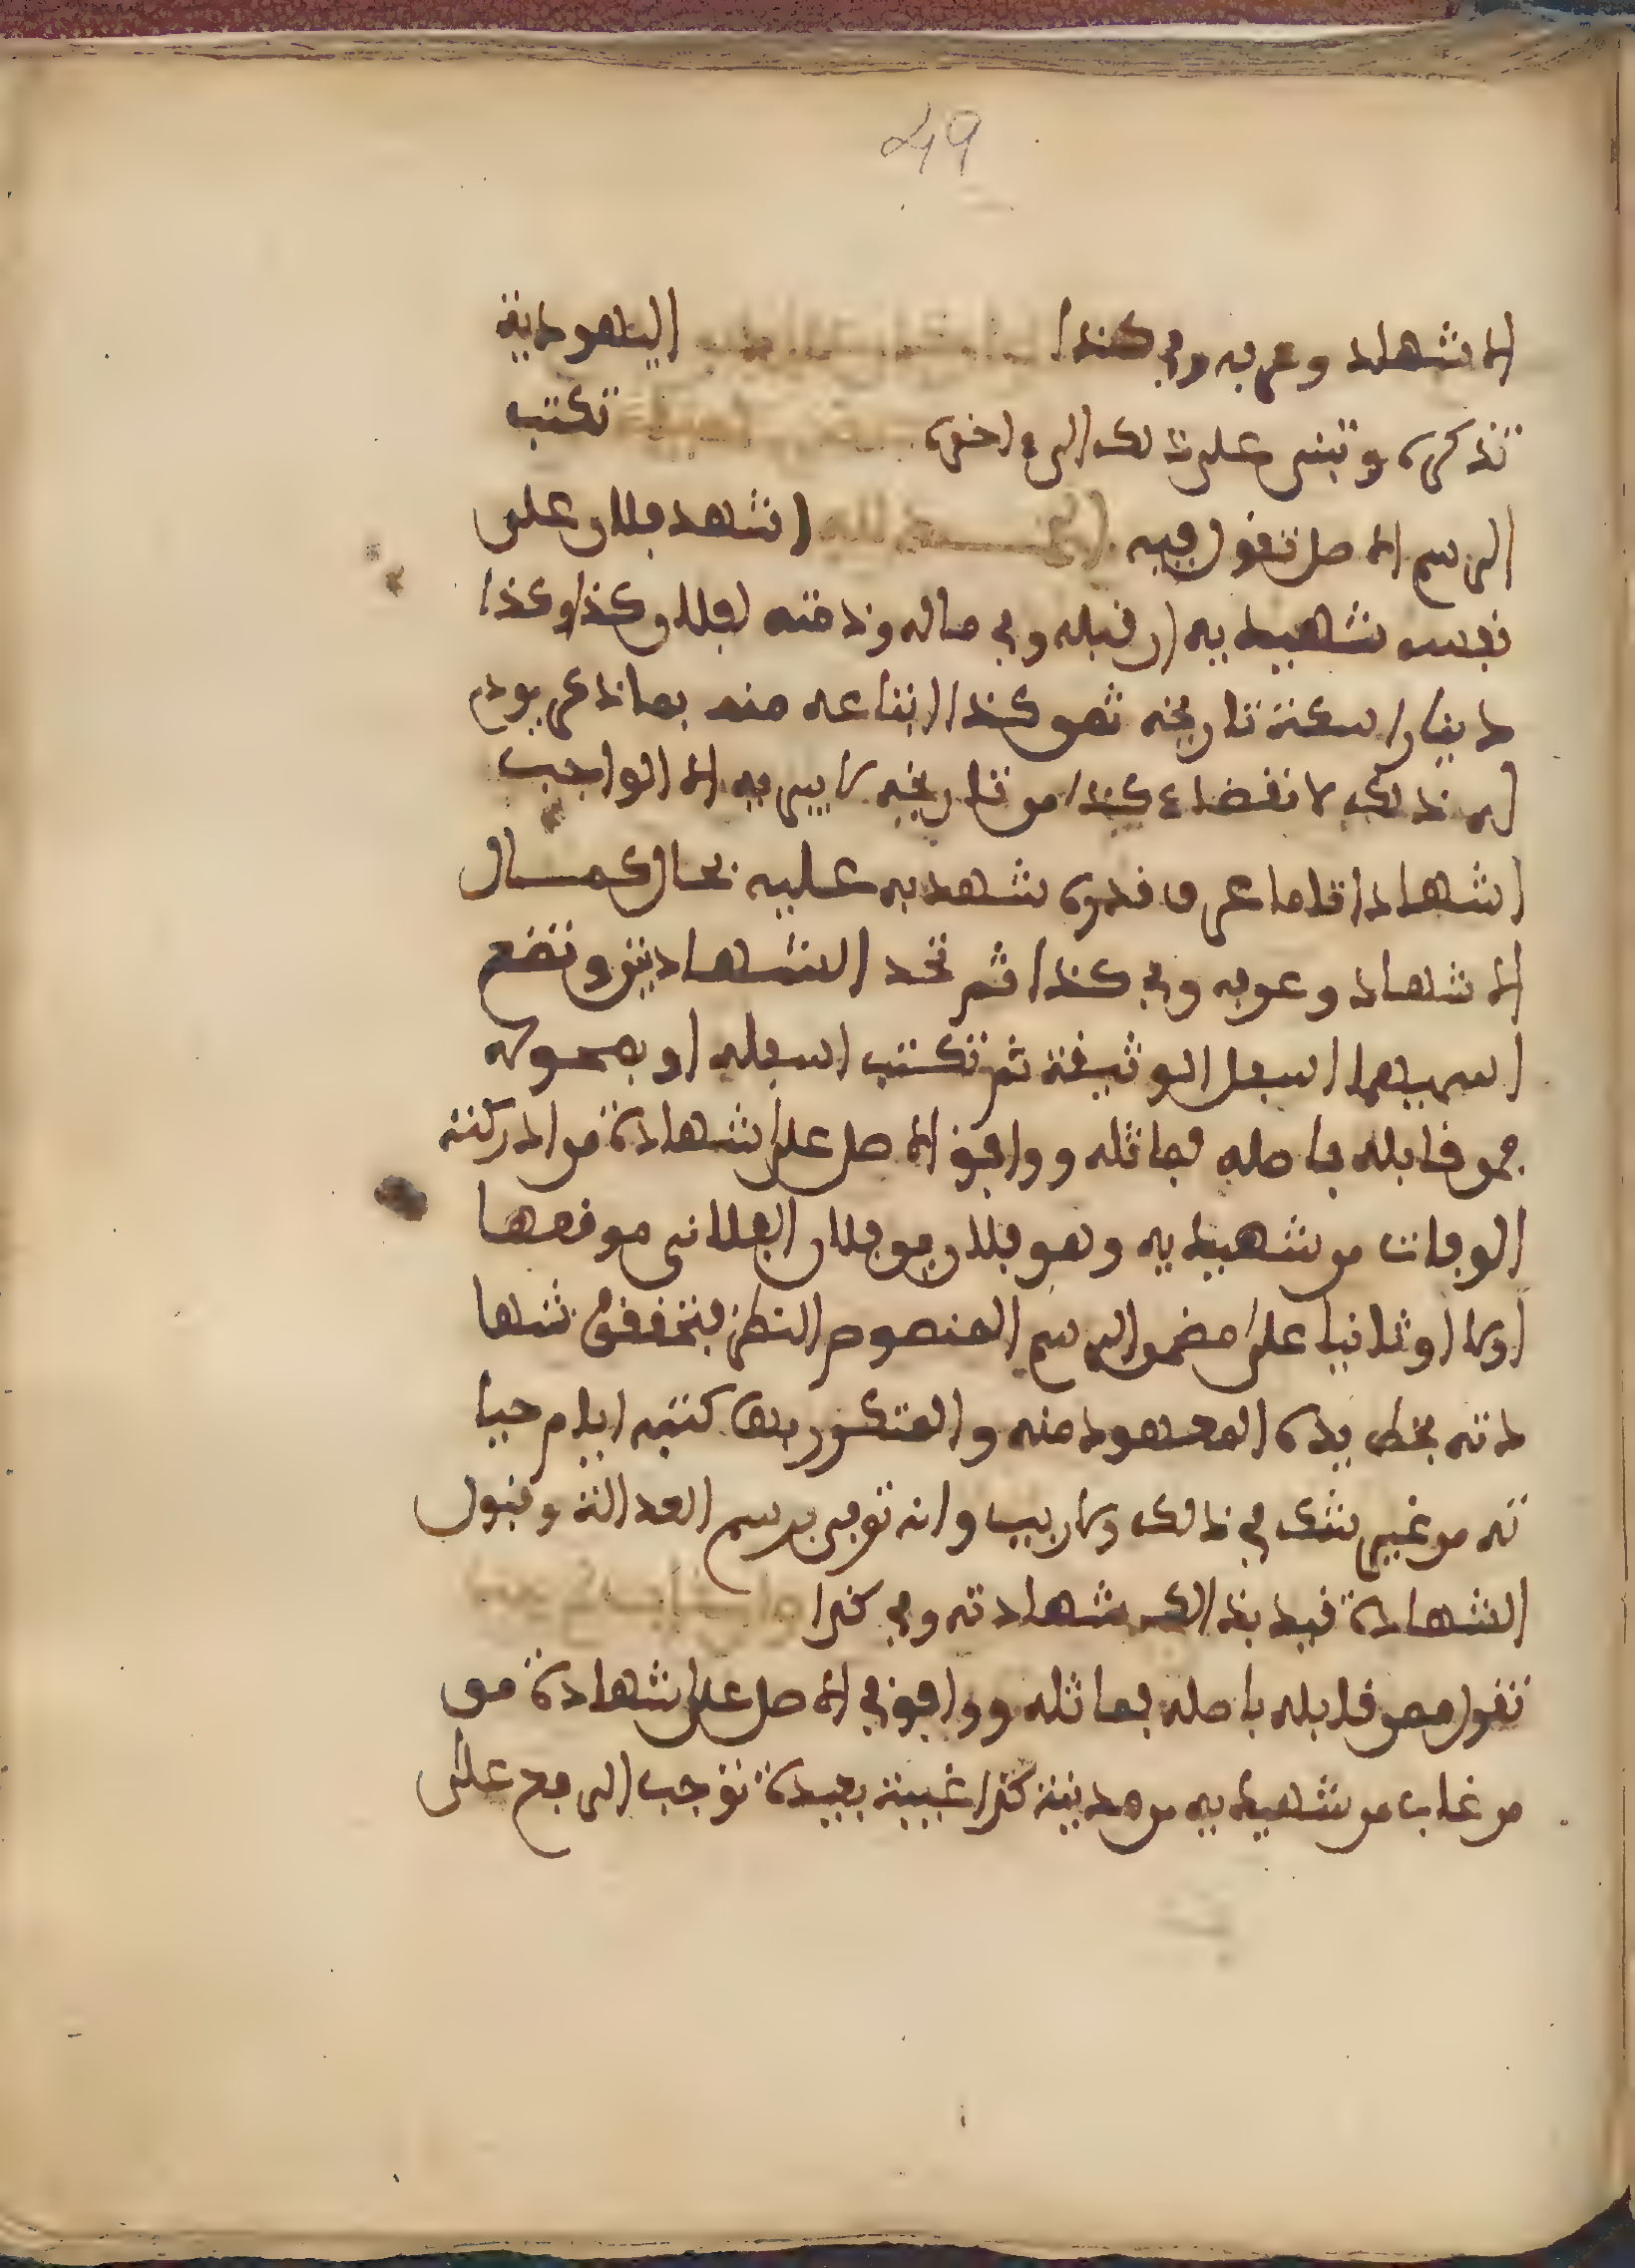 49
الاشهاد وعرفه وفي كذا اليهودية
تذكره وتبنى على ذلك الى اخره تكتب
الرسم الاصل تقول فيه الحمد لله اشهد فلان على
نفسه شهيديه ان قبله وفي ماله وذمته لفلان كذا وكذا
دينارا سكة تاريخه ثمن كذا ابتاعه منه بما ذكر يودى
له ذلك لانقضاء كذا من تاريخه لا يبريه الا الواجب
اشهادا تاما عرف قدره شهد به عليه بحال كمال
الاشهاد وعرفه وفي كذا ثم تحد الشهادتين وتضع
اسميهما اسفل الوثيقة ثم تكتب اسفله او بمحوله
ممن قابله باصله فماثله ووافق الاصل على شهادة من ادركته
الوفات من شهيديه وهو فلان بن فلان الفلاني موقعها
اولا او ثانيا على مضمن الرسم المنصوص النظر بتحقق شها
دته بخط يده المعهود منه والمتكرر بها كتبه ايام حيا
ته من غير شك في ذالك ولا ريب وانه توفي برسم العدالة وقبول
الشهادة قيد بذالك شهادته وفي كذا
تقول ممن قابله باصله فماثله ووافق في الاصل على شهادة من
من غاب من شهيديه من مدينة كذا غيبة بعيدة توجب الرفع على